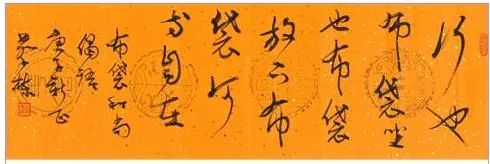 行也
布袋坐
也布袋
放下布
袋何
等自在
布袋和尚
偈语
庚子新正